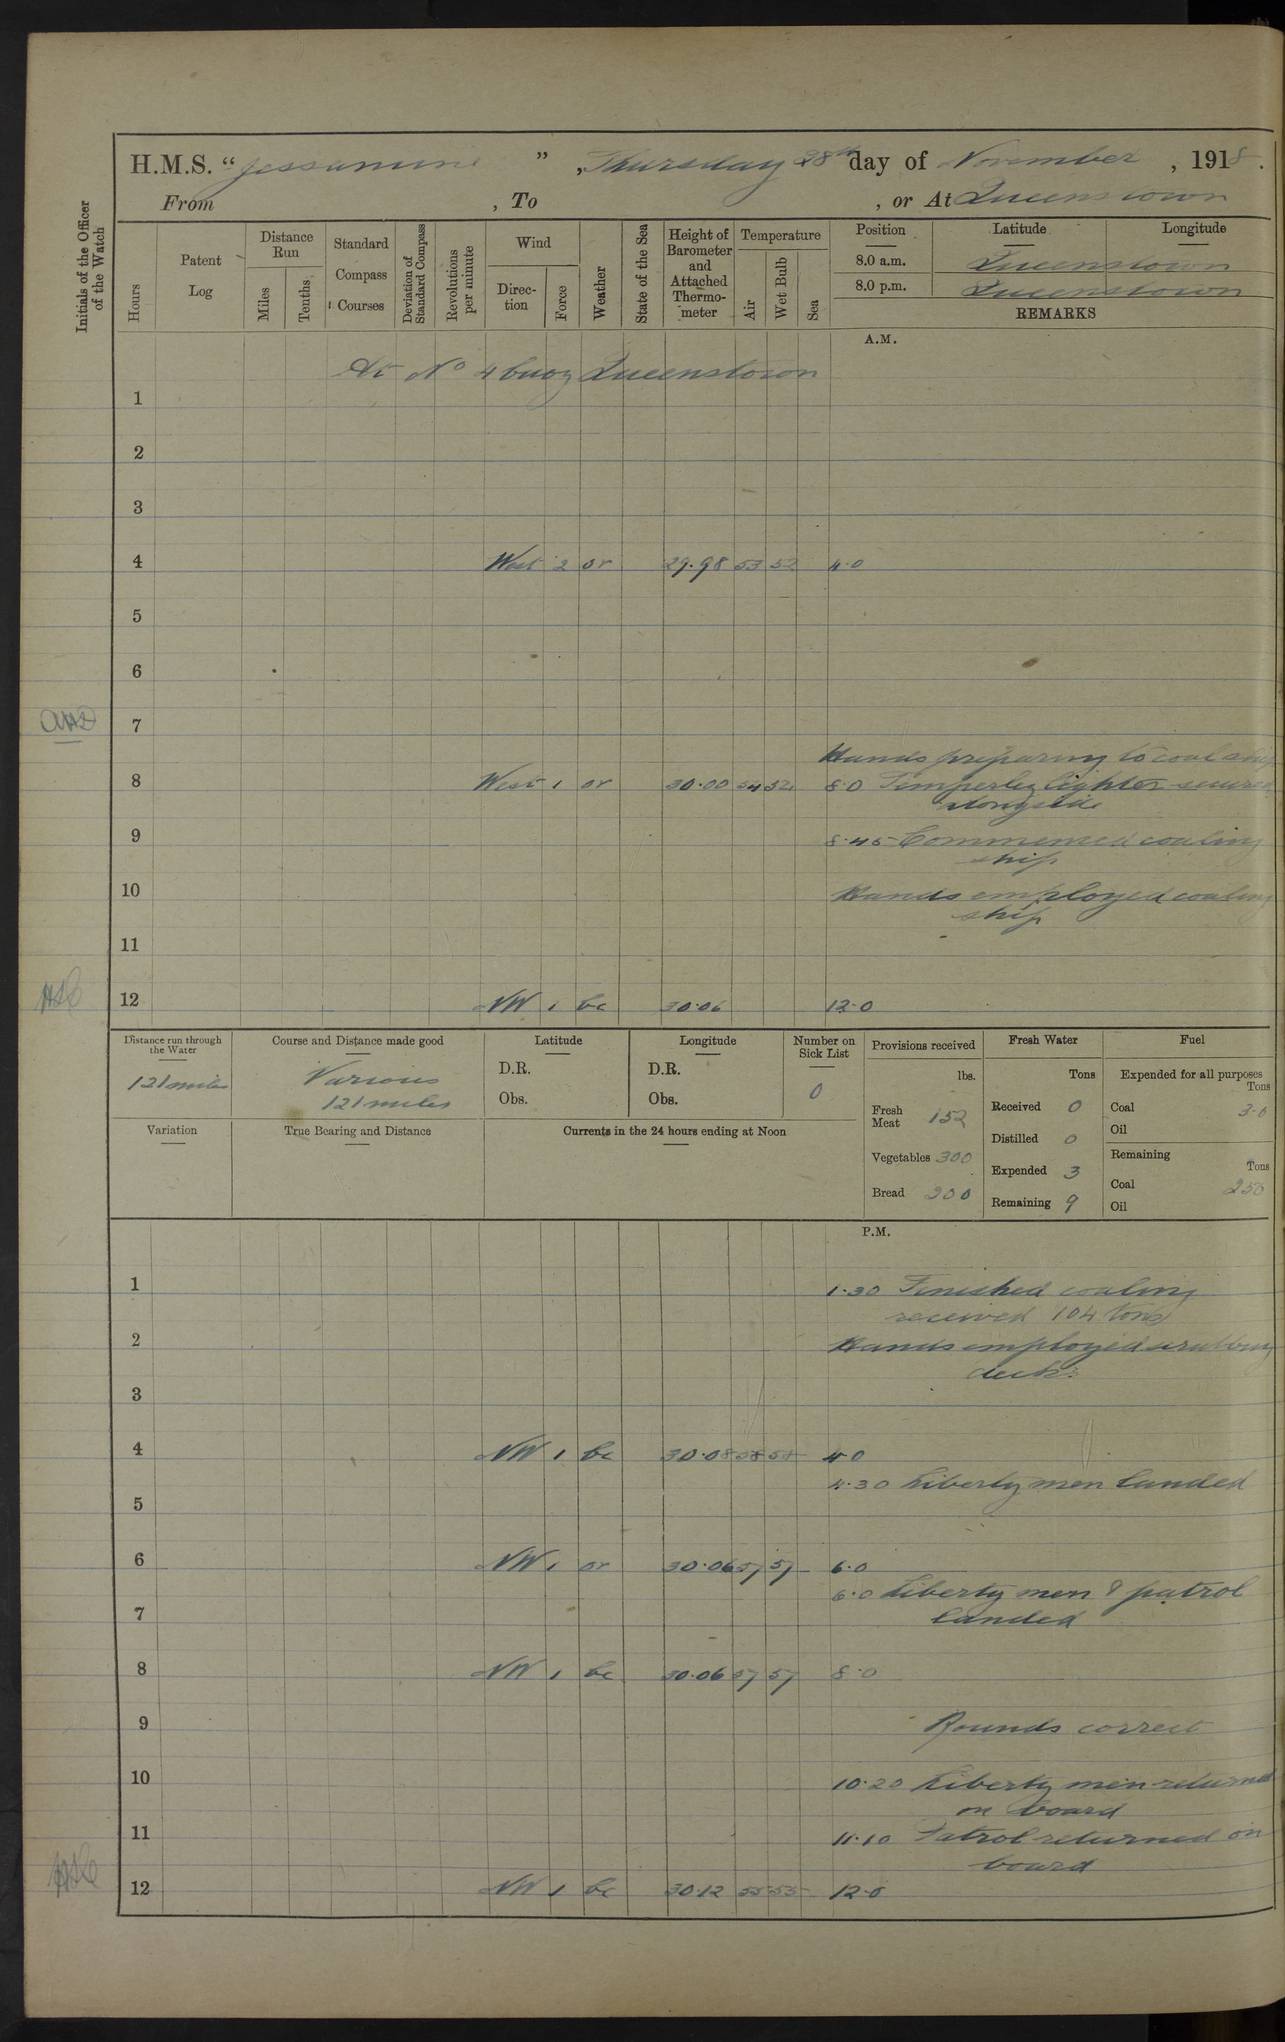 H.M.S. "Jessamine", Thursday 28th day of November, 1918.
From , To , or At Queenstown
Initials of the Officer of the Watch
Hours
Patent Log
Distance Run
Miles
Tenths
Standard Compass Courses
Deviation of Standard Compass
Revolutions per minute
Wind
Direc-tion
Force
Weather
State of the Sea
Height of Barometer and Attached Thermo-meter
Temperature
Air
Wet Bulb
Sea
Position Latitude Longitude
8.0 a.m. Queenstown
8.0 p.m. Queenstown
REMARKS
A.M.
At No 4 buoy Queenstown
1
2
3
4 West 2 or 29.98 53 52 4.0
5
6
7
Hands preparing to coal ship
8 West 1 or 30.00 54 52 8.0 Temperley lighter secured
alongside
9 8.45 Commenced coaling
ship
10 Hands employed coaling
ship
11
12 NW 1 bc 30.06 12.0
Distance run through the Water
121 miles
Course and Distance made good
Various
121 miles
Latitude
D.R.
Obs.
Longitude
D.R.
Obs.
Number on Sick List
0
Variation
True Bearing and Distance
Currents in the 24 hours ending at Noon
Provisions received
lbs.
Fresh Meat 152
Vegetables 300
Bread 200
Fresh Water
Tons
Received 0
Distilled 0
Expended 3
Remaining 9
Fuel
Expended for all purposes
Tons
Coal 3.0
Oil
Remaining
Tons
Coal 250
Oil
P.M.
1 1.30 Finished coaling
received 104 tons
2 Hands employed scrubbing
decks.
3
4 NW 1 bc 30.08 58 58 4.0
4.30 Liberty men landed
5
6 NW 1 or 30.06 57 57 6.0
6.0 Liberty men & patrol
7 landed
8 NW 1 bc 30.06 57 57 8.0
9 Rounds correct
10 10.20 Liberty men returned
on board
11 11.10 Patrol returned on
board
12 NW 1 bc 30.12 55 55 12.0